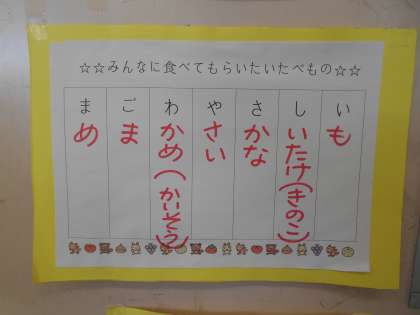 ☆☆みんなに食べてもらいたいたべもの☆☆
いも
しいたけ(きのこ)
さかな
やさい
わかめ(かいそう)
ごま
まめ